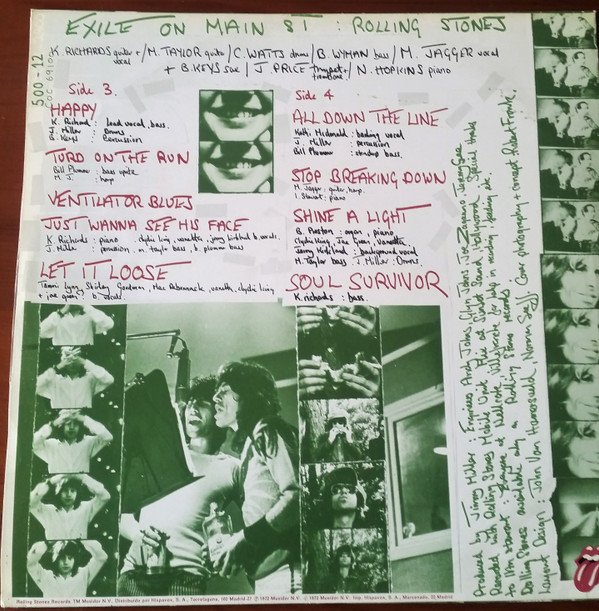 EXILE ON MAIN ST : ROLLING STONES
K. RICHARDS guitar + / M. TAYLOR guitar / C. WATTS drums / B. WYMAN bass / M. JAGGER vocal
vocal
+ B. KEYS sax / J. PRICE Trumpet + / N. HOPKINS piano
trombone
500-12
COC 69100
Side 3.
HAPPY
K. Richard : Lead vocal, bass.
J. Miller : Drums
B. Keys : Percussion
TURD ON THE RUN
Bill Plummer : bass
M. J. : harp
VENTILATOR BLUES
JUST WANNA SEE HIS FACE
K. Richards : piano clydie king, vanetta, jerry kirkland b. vocals.
J. Miller : percussion m. taylor bass, b. plummer bass
LET IT LOOSE
Tammi Lynn, Shirley Goodman, Mac Rebennack, vanetta, clydie king
+ joe green : b. vocals.
Side 4
ALL DOWN THE LINE
Kathi Mcdonald : backing vocal
J. Miller : percussion
Bill Plummer : standup bass.
STOP BREAKING DOWN
M. Jagger : guitar, harp.
I. Stewart : piano
SHINE A LIGHT
B. Preston : organ, piano
Clydie King, Joe Green, Vanetta,
Jerry Kirkland : background vocal
M. Taylor bass J. Miller : Drums
SOUL SURVIVOR
K. richards : bass.
Produced by Jimmy Miller : Engineers Andy Johns, Glyn Johns, Joe Zagarino, Jeremy Gee
Recorded with Rolling Stones Mobile Unit. Mix at Sunset Sound, Hollywood. Special thanks
to Ian Stewart
Rolling Stones available only on Rolling Stones records
Layout Design : John Van Hamersveld, Norman Seeff. Cover photography + concept Robert Frank.
Rolling Stones Records TM Musidor N.V. Distribuido por Hispavox, S. A., Torrelaguna, 102 Madrid-27 Ⓟ 1972 Musidor N.V. © 1972 Musidor N.V. Imp. Hispavox, S. A., Marcenado, 33 Madrid